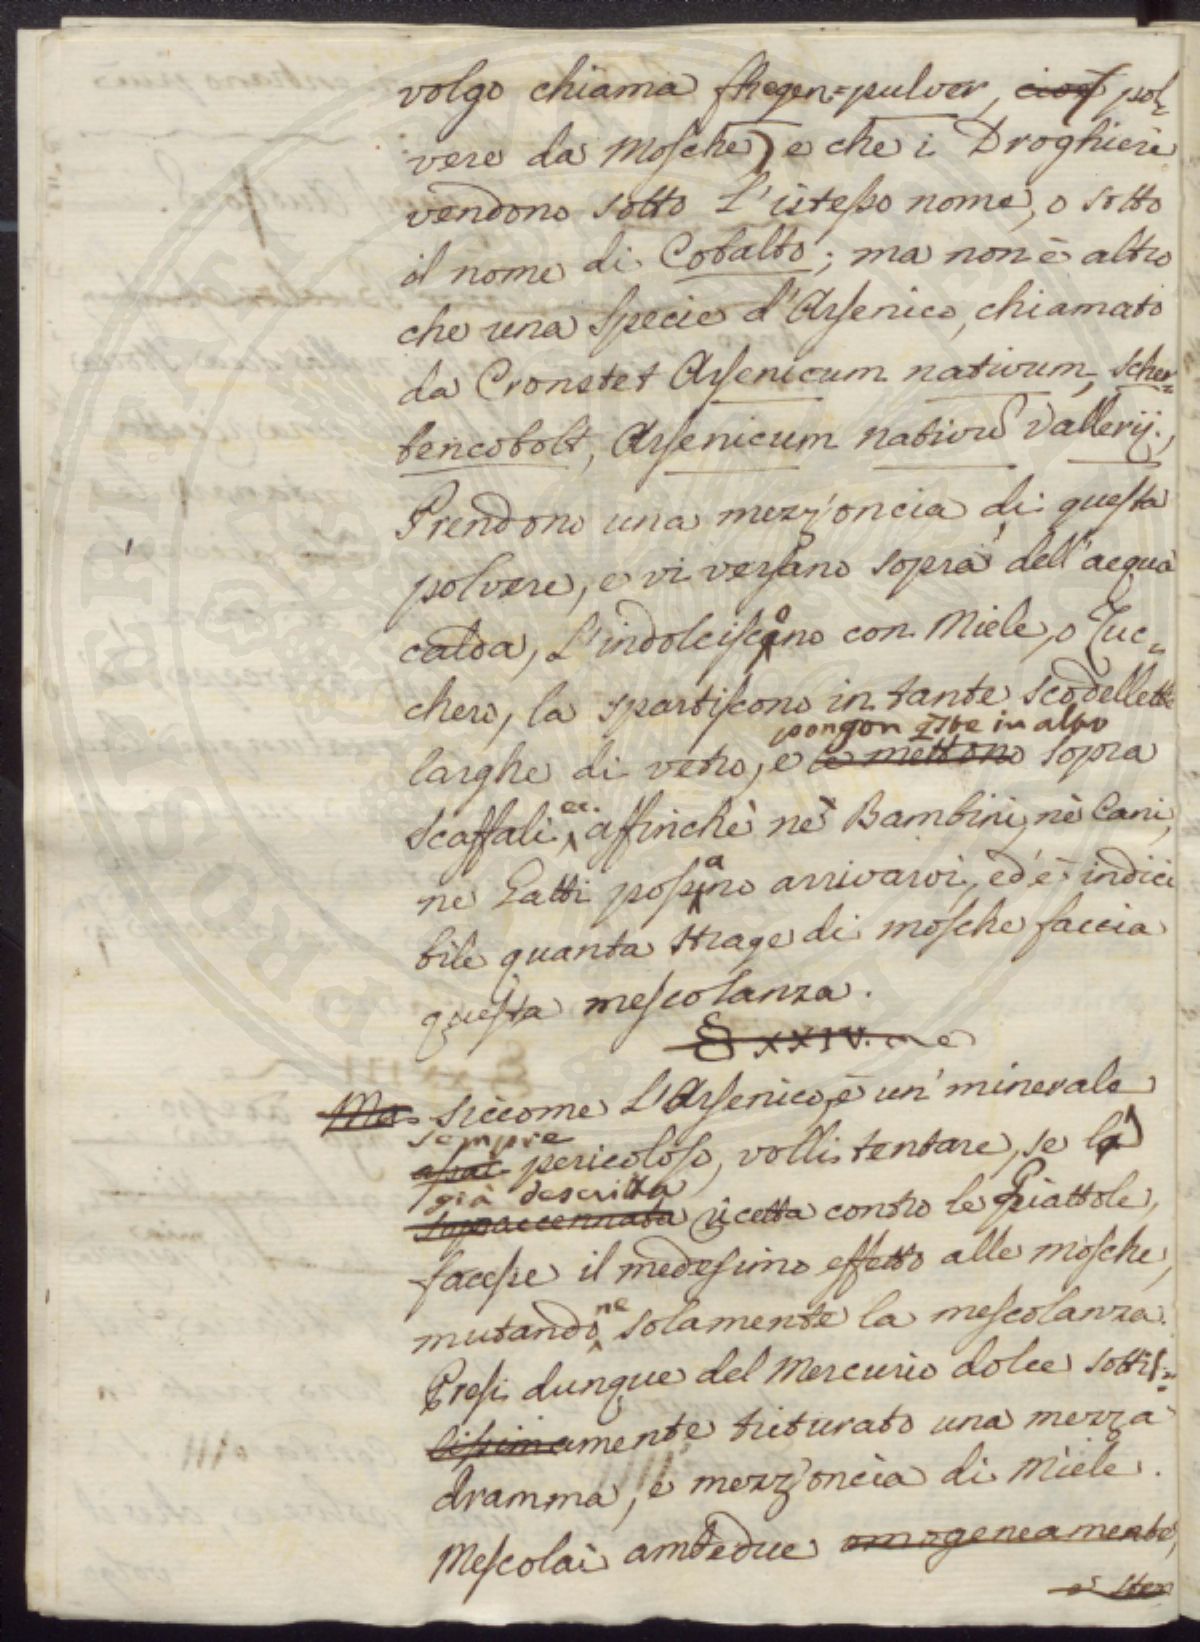 volgo chiama fhegen=pulver, cioè pol=
vere da Mosche) e che i Droghieri
vendono sotto l'istesso nome, o sotto
il nome di Cobalto; ma non è altro
che una specie d'Arsenico, chiamato
da Cronstet Arsenicum nativum, scher=
bencobolt, Arsenicum nativū Vallerij.,
Prendono una mezz'oncia di questa
polvere, e vi versano sopra dell'acqua
calda, l'indolciscono con Miele, o Zuc=
chero, la spartiscono in tante scodellette
pongon qste in alto
larghe di vetro, e le mettono sopra
scaffali, ec. affinchè nè Bambini, nè Cani,
ne Gatti possano arrivarvi, ed è indici
bile quanta strage di mosche faccia
questa mescolanza.
§ XXIV.
Ma siccome l'Arsenico è un' minerale
sempre
assai pericoloso, volli tentare, se la
già descritta
sopraccennata ricetta contro le Piattole,
facesse il medesimo effetto alle mosche,
mutandone solamente la mescolanza.
Presi dunque del Mercurio dolce sottil=
lissimamente triturato una mezza
dramma, e mezz'oncia di Miele.
Mescolai ambedue omogeneamente,
e sten